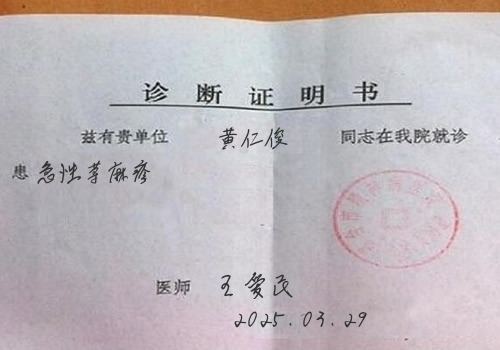 诊断证明书
兹有贵单位 黄仁俊 同志在我院就诊
患 急性荨麻疹
医师 王爱民
2025.03.29